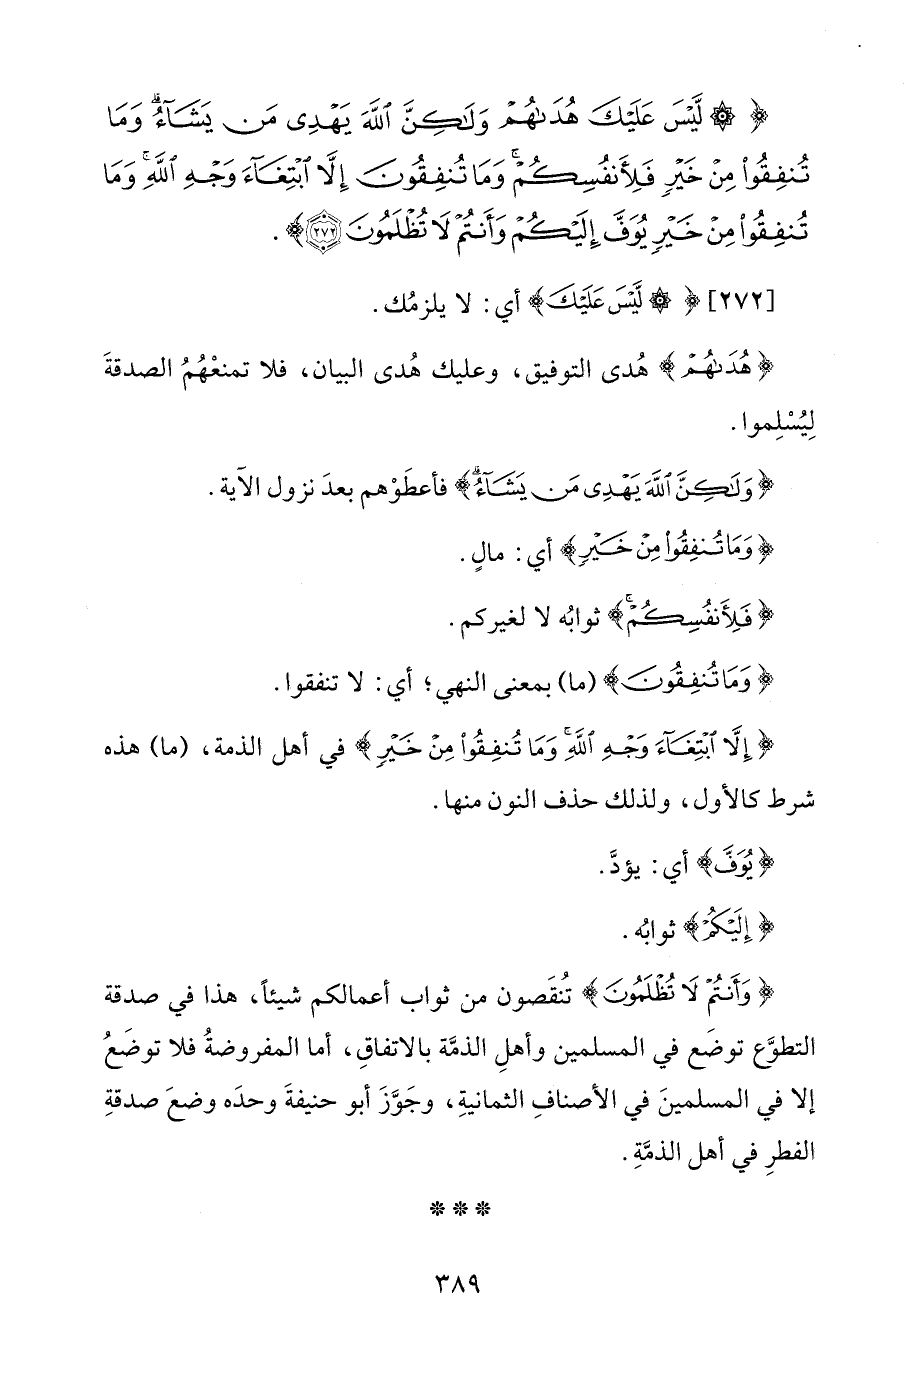 ﴿ ۞ لَّيْسَ عَلَيْكَ هُدَىٰهُمْ وَلَٰكِنَّ ٱللَّهَ يَهْدِى مَن يَشَآءُ ۗ وَمَا
تُنفِقُوا۟ مِنْ خَيْرٍ فَلِأَنفُسِكُمْ ۚ وَمَا تُنفِقُونَ إِلَّا ٱبْتِغَآءَ وَجْهِ ٱللَّهِ ۚ وَمَا
تُنفِقُوا۟ مِنْ خَيْرٍ يُوَفَّ إِلَيْكُمْ وَأَنتُمْ لَا تُظْلَمُونَ ۝٢٧٢ ﴾ .
[٢٧٢] ﴿ ۞ لَّيْسَ عَلَيْكَ﴾ أي: لا يلزمُك.
﴿ هُدَىٰهُمْ ﴾ هُدى التوفيق، وعليك هُدى البيان، فلا تمنعْهُمُ الصدقةَ
لِيُسْلِموا.
﴿وَلَٰكِنَّ ٱللَّهَ يَهْدِى مَن يَشَآءُ ۗ﴾ فأعطَوْهم بعدَ نزول الآية.
﴿وَمَا تُنفِقُوا۟ مِنْ خَيْرٍ﴾ أي: مالٍ.
﴿فَلِأَنفُسِكُمْ ۚ﴾ ثوابُه لا لغيركم.
﴿وَمَا تُنفِقُونَ﴾ (ما) بمعنى النهي؛ أي: لا تنفقوا.
﴿ إِلَّا ٱبْتِغَآءَ وَجْهِ ٱللَّهِ ۚ وَمَا تُنفِقُوا۟ مِنْ خَيْرٍ ﴾ في أهل الذمة، (ما) هذه
شرط كالأول، ولذلك حذف النون منها.
﴿يُوَفَّ﴾ أي: يؤدَّ.
﴿إِلَيْكُمْ﴾ ثوابُه.
﴿وَأَنتُمْ لَا تُظْلَمُونَ﴾ تُنقَصون من ثواب أعمالكم شيئاً، هذا في صدقة
التطوَّع توضَع في المسلمين وأهلِ الذمَّة بالاتفاقِ، أما المفروضةُ فلا توضَعُ
إلا في المسلمينَ في الأصنافِ الثمانيةِ، وجَوَّزَ أبو حنيفةَ وحدَه وضعَ صدقةِ
الفطرِ في أهل الذمَّةِ.
* * *
٣٨٩